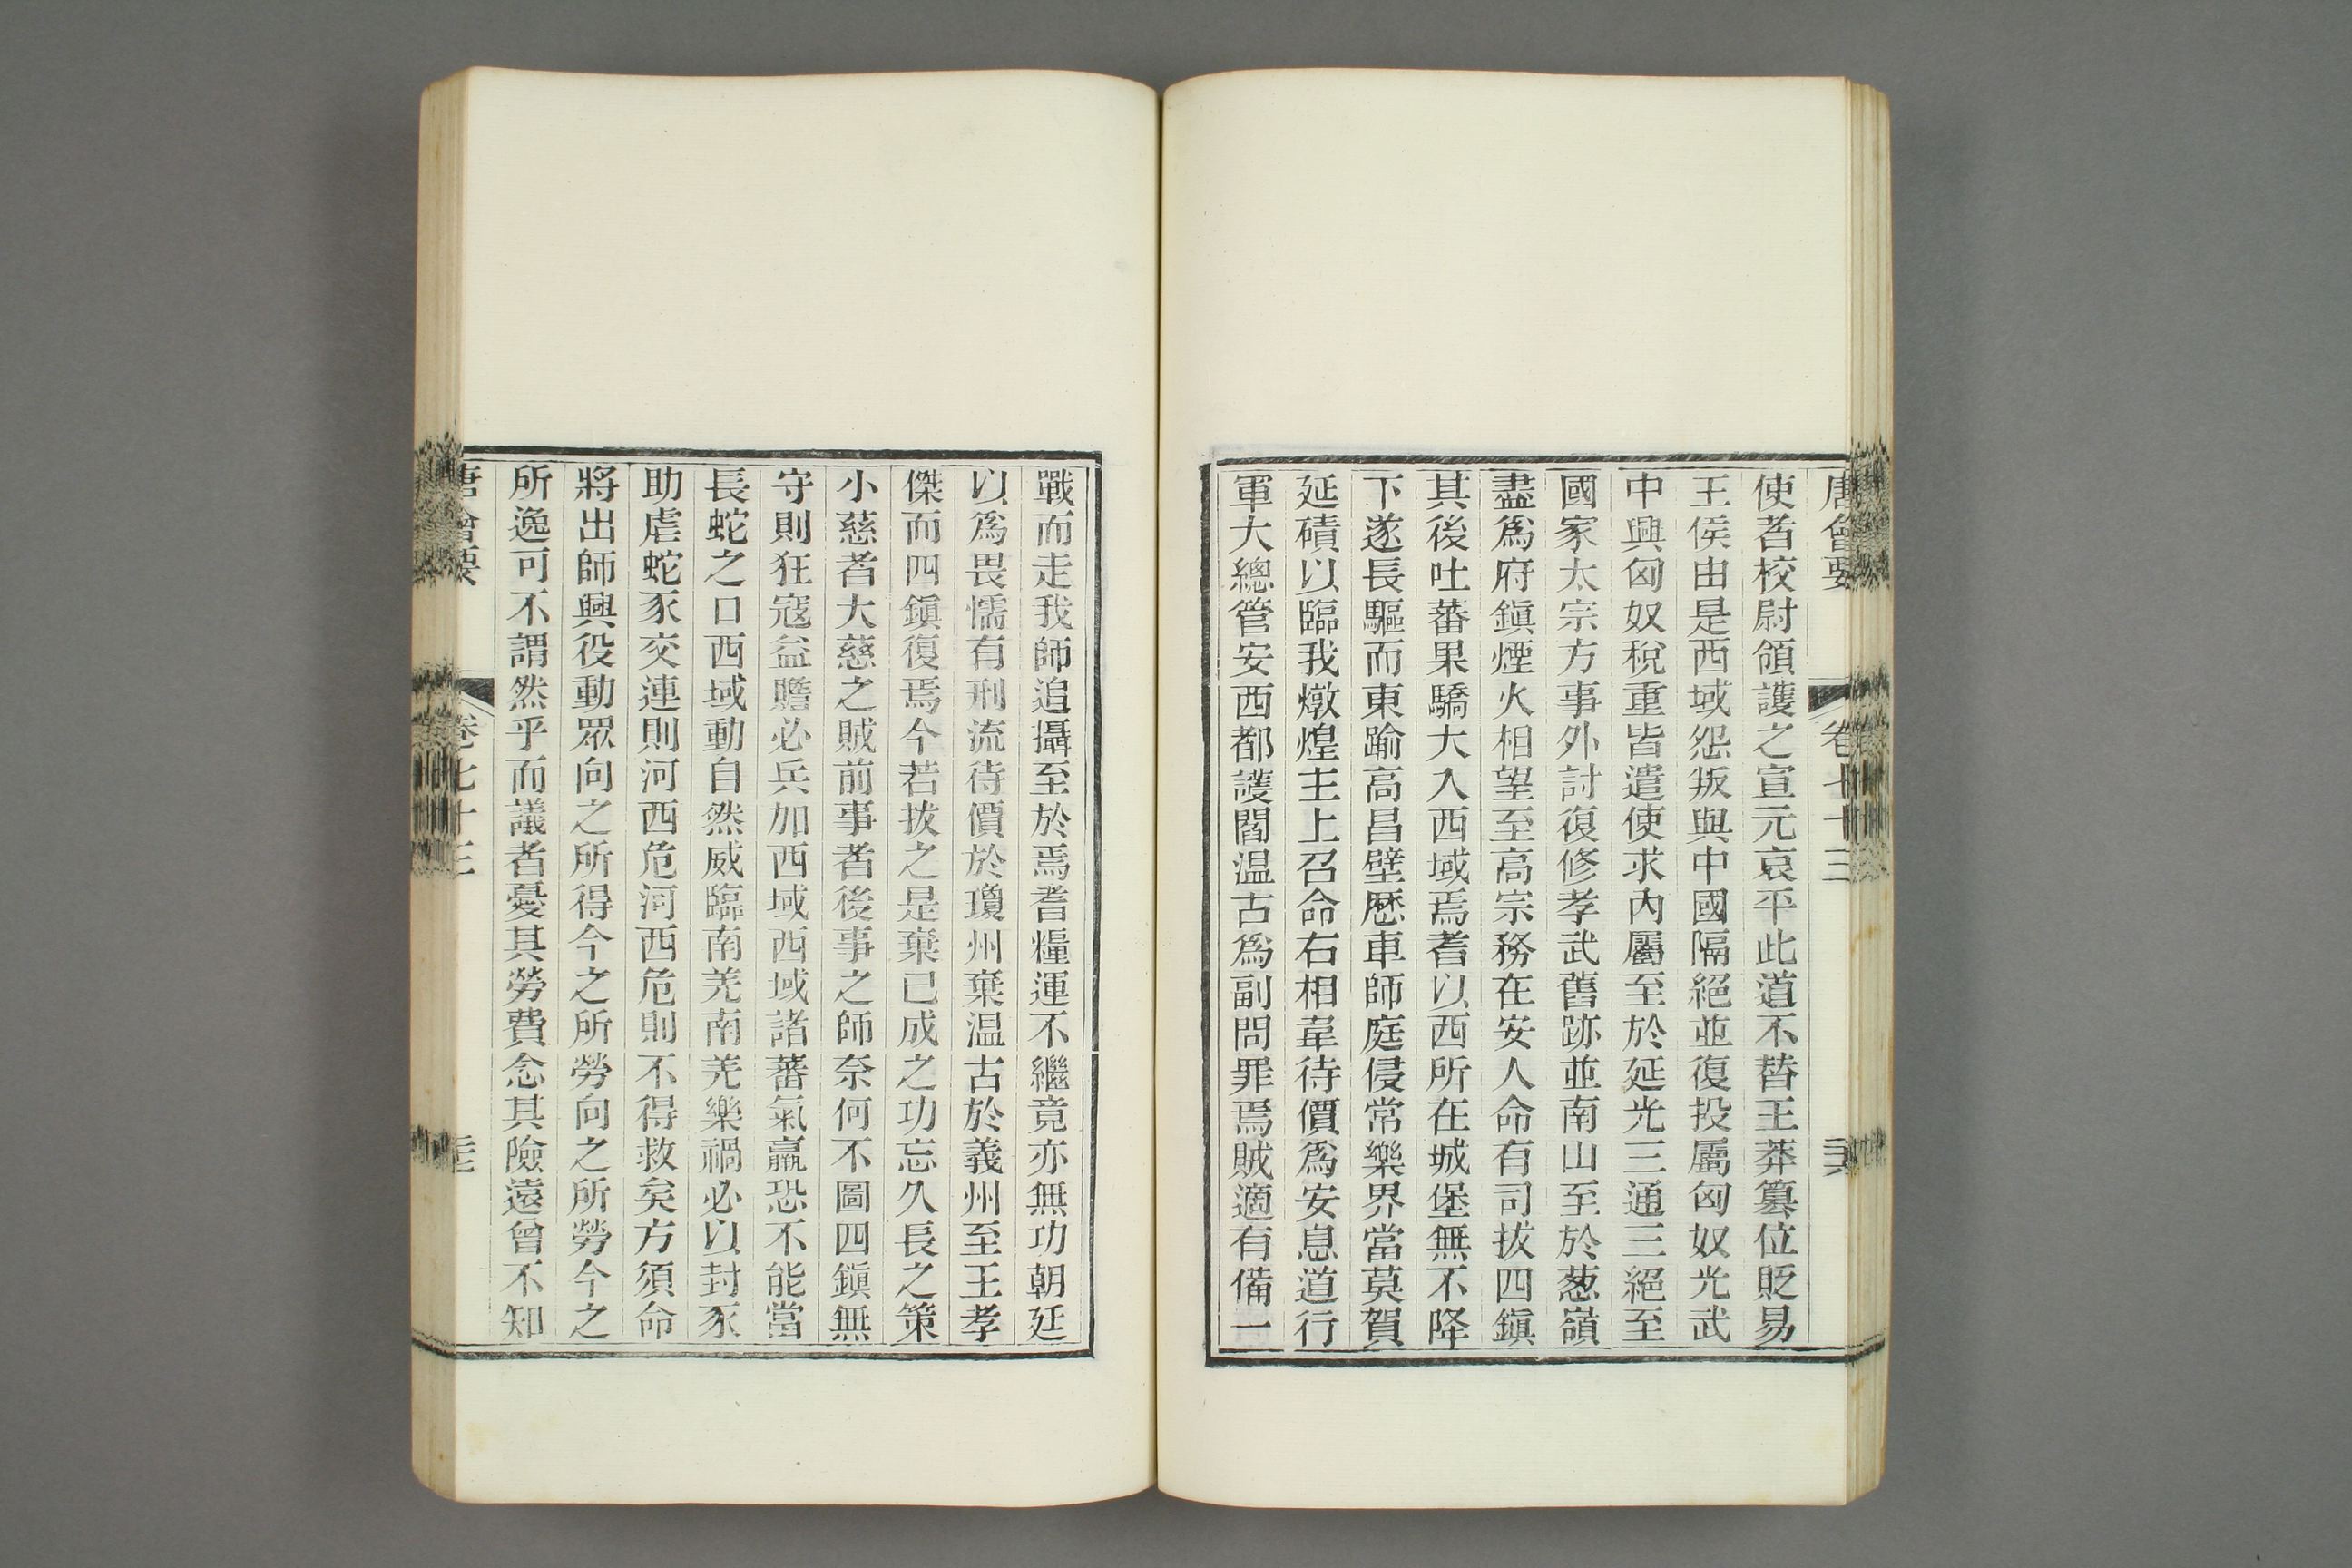 唐會要 卷七十三
使者校尉領護之宣元哀平此道不替王莽篡位貶易
王侯由是西域怨叛與中國隔絕並復投屬匈奴光武
中興匈奴稅重皆遣使求內屬至於延光三通三絕至
國家太宗方事外討復修孝武舊跡並南山至於葱嶺
盡爲府鎭煙火相望至高宗務在安人命有司拔四鎭
其後吐蕃果驕大入西域焉耆以西所在城堡無不降
下遂長驅而東踰高昌壁歷車師庭侵常樂界當莫賀
延磧以臨我燉煌主上召命右相韋待價爲安息道行
軍大總管安西都護閻温古爲副問罪焉賊適有備一
戰而走我師追攝至於焉耆糧運不繼竟亦無功朝廷
以爲畏懦有刑流待價於瓊州棄温古於義州至王孝
傑而四鎭復焉今若拔之是棄已成之功忘久長之策
小慈者大慈之賊前事者後事之師奈何不圖四鎭無
守則狂寇益贍必兵加西域西域諸蕃氣羸恐不能當
長蛇之口西域動自然威臨南羌南羌樂禍必以封豕
助虐蛇豕交連則河西危河西危則不得救矣方須命
將出師興役動眾向之所得今之所勞向之所勞今之
所逸可不謂然乎而議者憂其勞費念其險遠曾不知
唐會要 卷七十三